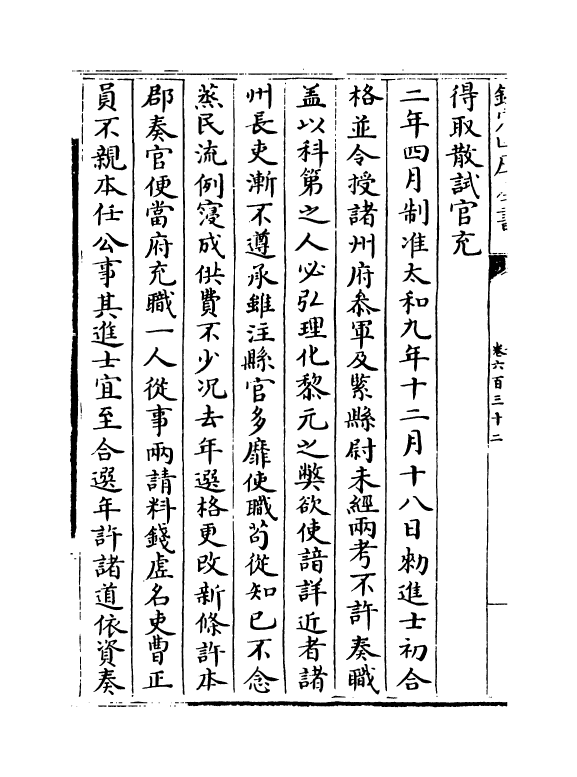 得取散試官充
二年四月制准太和九年十二月十八日勅進士初合
格並令授諸州府叅軍及緊縣尉未經兩考不許奏職
盖以科第之人必弘理化黎元之弊欲使諳詳近者諸
州長吏漸不遵承雖注縣官多靡使職茍從知已不念
蒸民流例寖成供費不少况去年選格更改新條許本
郡奏官便當府充職一人從事兩請料錢虛名吏曹正
員不親本任公事其進士宜至合選年許諸道依資奏
卷六百三十二